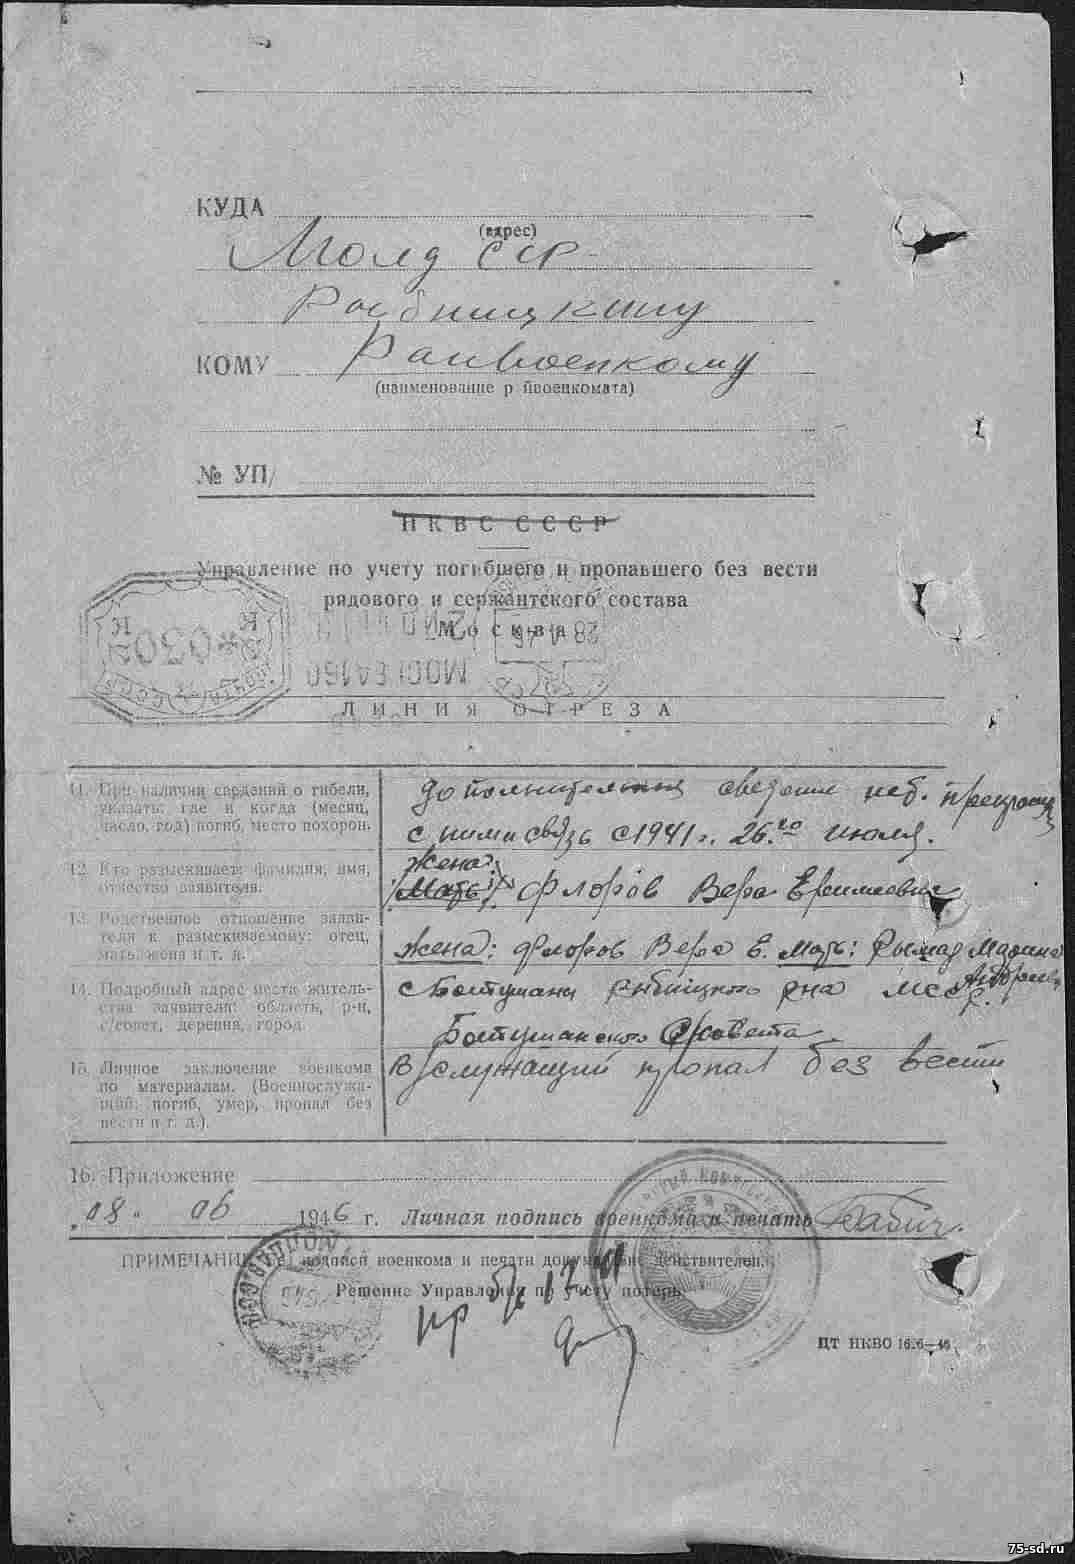 КУДА
(адрес)
Молд ССР
Рыбницкому
КОМУ Райвоенкому
(наименование р йвоенкомата)
№ УП/
НКВС СССР
Управление по учету погибшего и пропавшего без вести
рядового и сержантского состава
Москва
28 46
*0302
К К
ПОЧТА СССР
МОСКВА 160
ЛИНИЯ ОТРЕЗА
11. При наличии сведений о гибели, указать: где и когда (месяц, число, год) погиб, место похорон.
дополнительных сведений неб.
с ними связь с 1941 г. 26.го июля.
12. Кто разыскивает: фамилия, имя, отчество заявителя.
жена:
(Мать:) Флоров Вера
13. Родственное отношение заявителя к разыскиваемому: отец, мать, жена и т. д.
жена: Флоров Вера Е. мать:
14. Подробный адрес места жительства заявителя: область, р-н, с/совет, деревня, город.
с Ботушаны рыбницкого рна МССР
Ботушанского с/совета
15. Личное заключение военкома по материалам. (Военнослужащий: погиб, умер, пропал без вести и т. д.).
В/служащий пропал без вести
16. Приложение
"08" 06 1946 г. Личная подпись военкома и печать
ПРИМЕЧАНИЕ: подписи военкома и печати документ не действителен.
Решение Управления по учету потерь
пр б/в
ЦТ НКВО 16.6—46
75-sd.ru